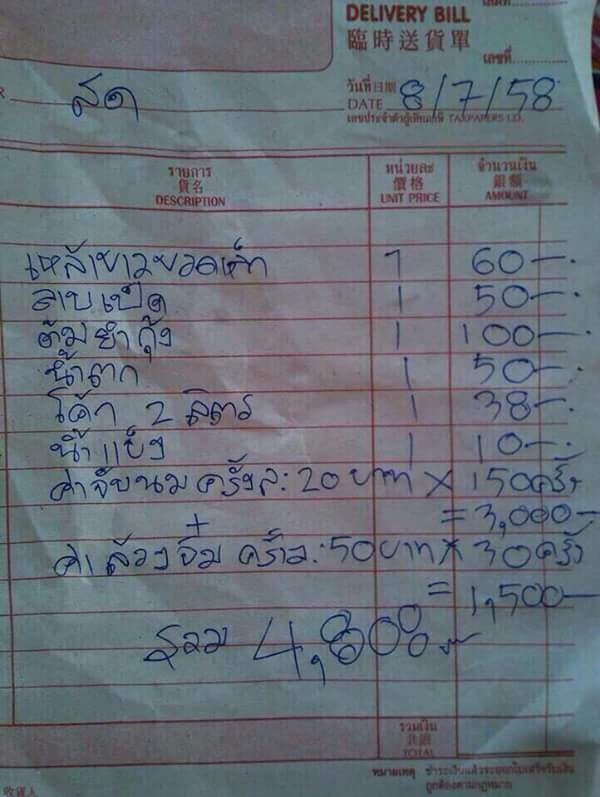 DELIVERY BILL
臨時送貨單
เลขที่
วันที่日期
DATE 8/7/58
เลขประจำตัวผู้เสียภาษี TAXPAPERS I.D.
สด
รายการ หน่วยละ จำนวนเงิน
貨名 價格 銀額
DESCRIPTION UNIT PRICE AMOUNT
เหล้าขาว 1 60-.
ลาบเป็ด 1 50-.
ต้มยำกุ้ง 1 100-.
น้ำตก 1 50-.
โค้ก 2 ลิตร 1 38-.
น้ำแข็ง 1 10-.
ค่าจับนม ครั้งล: 20 บาท X 150 ครั้ง
= 3,000-
+
ค่าล้วงจิ๋ม ครั้งล: 50 บาท X 30 ครั้ง
= 1,500-
รวม 4,808
รวมเงิน
共銀
TOTAL
หมายเหตุ ชำระเงินแล้วจะออกใบเสร็จรับเงิน
ถูกต้องตามกฎหมาย
收貨人